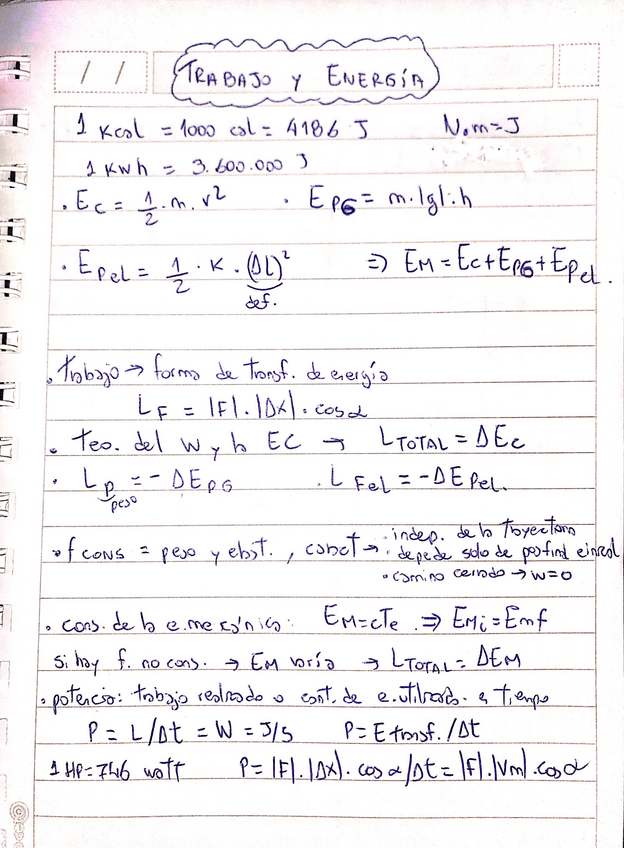 / /
TRABAJO Y ENERGÍA
1 Kcal = 1000 cal = 4186 J N.m=J
1 KWh = 3.600.000 J
. Ec = 1/2 . m. v² . EPG = m.|g|.h
. EPel = 1/2 . K . (ΔL)² ⇒ EM = Ec+EPG+EPel.
def.
. Trabajo → forma de transf. de energía
LF = |F|.|Δx|. cosα
. teo. del W y la EC → LTOTAL = ΔEc
. Lp = - ΔEPG . LFel = -ΔEPel.
peso
. f cons = peso y elast., caract → . indep. de la trayectoria
. depede solo de pos final e inicial
. camino cerrado → w=0
. cons. de la e. mecánica: EM=cTe ⇒ EMi = Emf
si hay f. no cons. → EM varía → LTOTAL = ΔEM
. potencia: trabajo realizado o cant. de e. utilizada. e tiempo
P = L/Δt = W = J/s P = E transf. /Δt
1 HP = 746 watt P = |F|.|Δx|. cos α/Δt = |F|.|Vm|.cosα